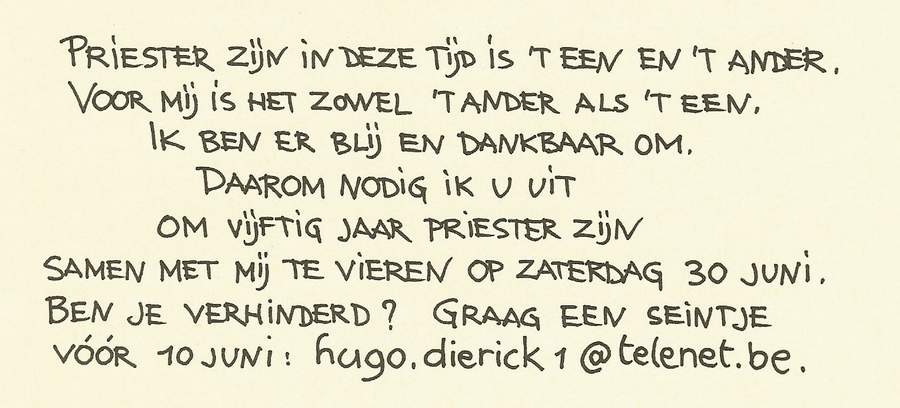 PRIESTER ZIJN IN DEZE TIJD IS 'T EEN EN 'T ANDER.
VOOR MIJ IS HET ZOWEL 'T ANDER ALS 'T EEN.
IK BEN ER BLIJ EN DANKBAAR OM.
DAAROM NODIG IK U UIT
OM VIJFTIG JAAR PRIESTER ZIJN
SAMEN MET MIJ TE VIEREN OP ZATERDAG 30 JUNI.
BEN JE VERHINDERD? GRAAG EEN SEINTJE
VÓÓR 10 JUNI: hugo.dierick1@telenet.be.